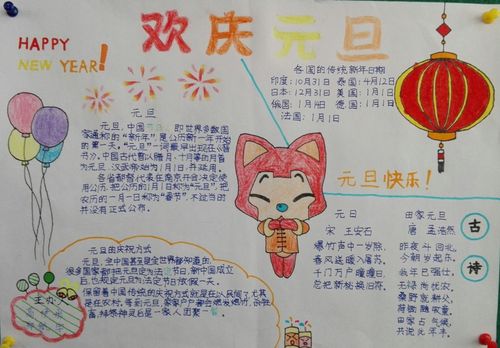 HAPPY
NEW YEAR!
欢庆元旦
各国的传统新年日期
印度:10月31日 泰国:4月12日
日本:12月31日 美国:1月1日
俄国:1月14日 德国:1月1日
法国:1月1日
元旦
元旦,中国节日,即世界多数国
家通称的“新年”,是公历新一年开始
的第一天。“元旦”一词最早出现在《晋
书》。中国古代曾以腊月、十月等的月首
为元旦,汉武帝始为1月1日,并延用。
各省都督代表在南京开会决定使
用公历,把公历的1月1日称为“元旦”,把
农历的一月一日称为“春节”,不过当时
并没有正式公布。
元旦快乐!
元日
宋 王安石
爆竹声中一岁除,
春风送暖入屠苏。
千门万户曈曈日,
总把新桃换旧符。
田家元旦
唐 孟浩然
昨夜斗回北,
今朝岁起东。
我年已强仕,
无禄尚忧农。
桑野就耕父,
荷锄随牧童。
田家占气候,
共说此年丰。
古
诗
元旦的庆祝方式
元旦,全中国甚至是全世界都知道的,
很多国家都把元旦定为法定节日,新中国成立
后也规定元旦为法定节日放假一天。
保留着中国传统的庆祝方式就是在人民间了尤其
是在农村。每到元旦,家家户户都会燃放爆竹,杀
鸡宰鹅,拜祭神灵后是一家人团聚一餐。
主办: